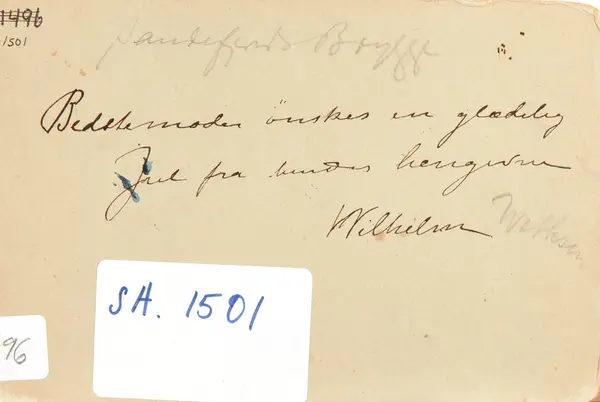 1496
1501
Sandefjords Brygge
Bedstemoder önskes en glædelig
Jul fra hendes hengivne
Wilhelm
SH. 1501
96